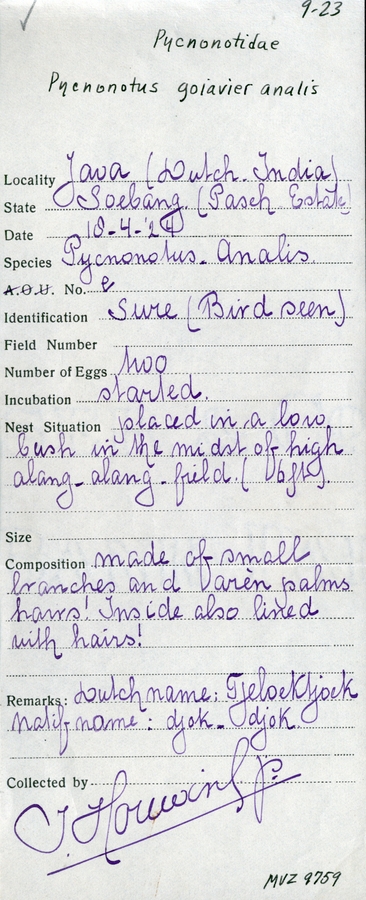 9-23
Pycnonotidae
Pycnonotus goiavier analis
Locality Java (Dutch-India)
State Soebang (Pasch Estate)
Date 18-4-'24
Species Pycnonotus-Analis
A.O.U. No. e
Identification Sure (Bird seen)
Field Number
Number of Eggs two
Incubation started.
Nest Situation placed in a low
bush in the midst of high
alang-alang-field. ( 6ft).
Size
Composition made of small
branches and arèn palms
hairs! Inside also lined
with hairs!
Remarks: Dutch name: Tjeloektjoek
natif name: djok-djok.
Collected by
MVZ 9759